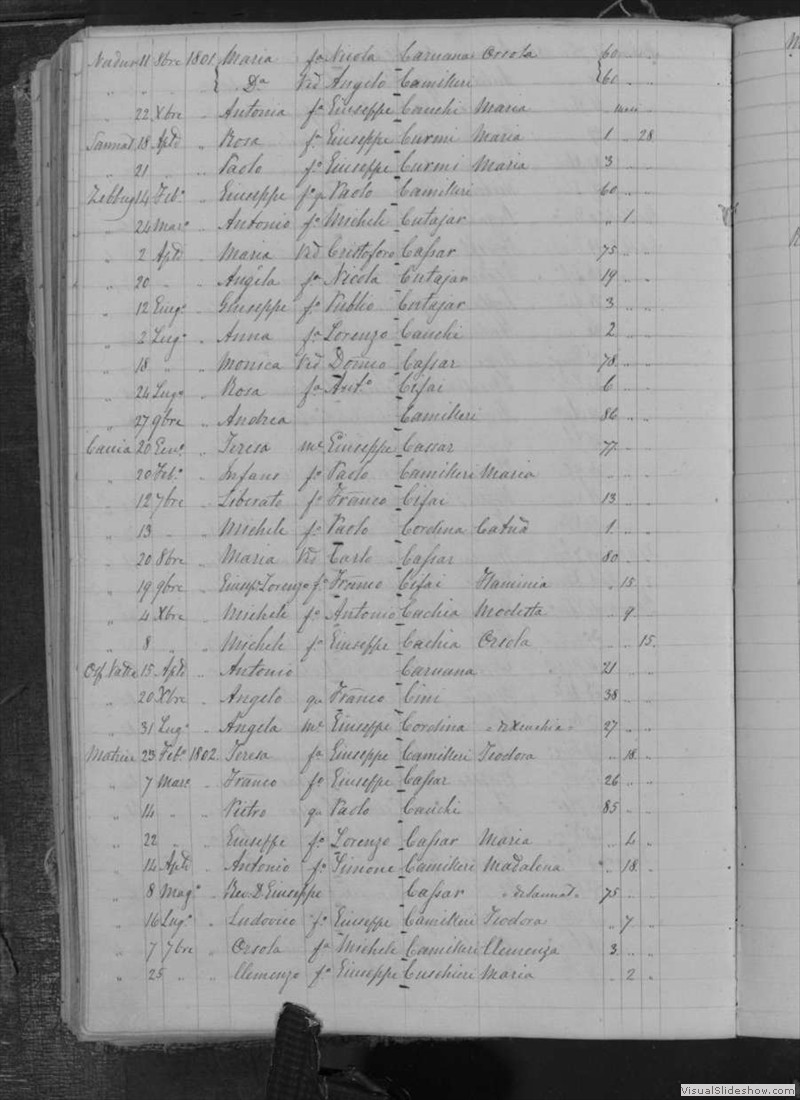 Nadur 11 8bre 1801 Maria fa Nicola Caruana Orsola 60 " "
" " " { Da Vid Angelo Camilleri {60 " "
" 22 Xbre " Antonia fa Giuseppe Cauchi Maria
Sannat 18 Aple " Rosa fa Giuseppe Curmi Maria 1 " 28
" 21 " " Paolo fo Giuseppe Curmi Maria 3 " "
Zebbug 14 Febo " Giuseppe fo qm Paolo Camilleri 60 " "
" 24 Maro " Antonio fo Michele Cutajar " 1 "
" 2 Aple " Maria Vid Cristoforo Cassar 75 " "
" 20 " " Angela fa Nicola Cutajar 19 " "
" 12 Giugo " Giuseppe fo Publio Cutajar 3 " "
" 2 Lugo " Anna fa Lorenzo Cauchi 2 " "
" 18 " " Monica Vid Domco Cassar 78 " "
" 24 Lugo " Rosa fa Anto Cifai 6 " "
" 27 9bre " Andrea Camilleri 86 " "
Caccia 20 Geno " Teresa me Giuseppe Cassar 77 " "
" 20 Febo " Infans fo Paolo Camilleri Maria " " "
" 12 7bre " Liberato fo Franco Cifai 13 " "
" 13 " " Michele fo Paolo Cordina Catña 1 " "
" 20 8bre " Maria Vid Carlo Cassar 80 " "
" 19 9bre " Giuspe Lorenzo fo Franco Cifai Flaminia " 15 "
" 4 Xbre " Michele fo Antonio Cachia Modesta " 9 "
" 8 " " Michele fo Giuseppe Cachia Orsola " " 15
15 Aple " Antonio Caruana 21 " "
" 20 Xbre " Angelo qm Franco Cini 38 " "
" 31 Lugo " Angela me Giuseppe Cordina 27 " "
Matrice 23 Febo 1802 Teresa fa Giuseppe Camilleri Teodora " 18 "
" 7 Maro " Franco fo Giuseppe Cassar 26 " "
" 14 " " Pietro qm Paolo Cauchi 85 " "
" 22 " " Giuseppe fo Lorenzo Cassar Maria " 4 "
" 14 Aple " Antonio fo Simone Camilleri Madalena " 18 "
" 8 Mago " Rev D Giuseppe Cassar " de Sannat " 75 " "
" 16 Lugo " Ludovico fo Giuseppe Camilleri Teodora " 7 "
" 7 7bre " Orsola fa Michele Camilleri Clemenza 3 " "
" 25 " " Clemenzo fo Giuseppe Cuschieri Maria " 2 "
VisualSlideshow.com